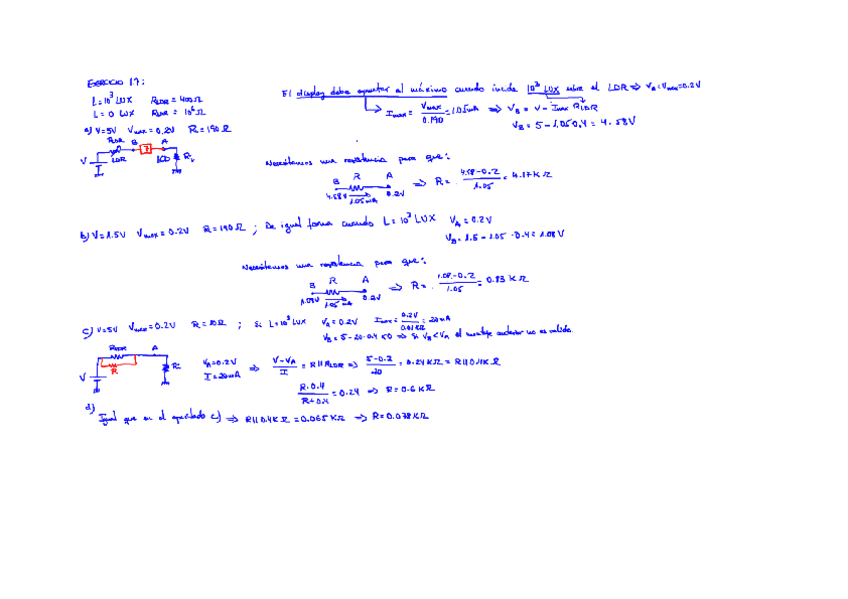 EJERCICIO 17:
L = 10³ LUX R_LDR = 400Ω
L = 0 LUX R_LDR = 10⁶ Ω
El display debe apuntar al máximo cuando incide 10³ LUX sobre el LDR ⇒ V_A = V_max = 0.2V
I_max = V_max / 0.190 = 1.05mA ⇒ V_B = V - I_max R_LDR
V_B = 5 - 1.05·0.4 = 4.58V
a) V=5V V_max = 0.2V R = 190Ω
R_LDR B A
V LDR ? LCD R_i
Necesitamos una resistencia para que:
B R A ⇒ R = (4.58-0.2) / 1.05 = 4.17KΩ
4.58V 1.05mA 0.2V
b) V=1.5V V_max = 0.2V R = 190Ω ; De igual forma cuando L = 10³ LUX V_A = 0.2V
V_B = 1.5 - 1.05 · 0.4 = 1.08V
Necesitamos una resistencia para que:
B R A ⇒ R = (1.08-0.2) / 1.05 = 0.83 KΩ
1.08V 1.05mA 0.2V
c) V=5V V_max = 0.2V R = 10Ω ; Si L=10³ LUX V_A = 0.2V I_max = 0.2V / 0.01KΩ = 20mA
V_B = 5 - 20·0.4 < 0 ⇒ Si V_B < V_A el montaje anterior no es valido.
R_LDR A
R
V R_i
V_A = 0.2V
I = 20mA ⇒ (V-V_A) / I = R||R_LDR ⇒ (5-0.2) / 20 = 0.24KΩ = R||0.4KΩ
R·0.4 / R+0.4 = 0.24 ⇒ R = 0.6KΩ
d)
Igual que en el apartado c) ⇒ R||0.4KΩ = 0.065KΩ ⇒ R = 0.078KΩ